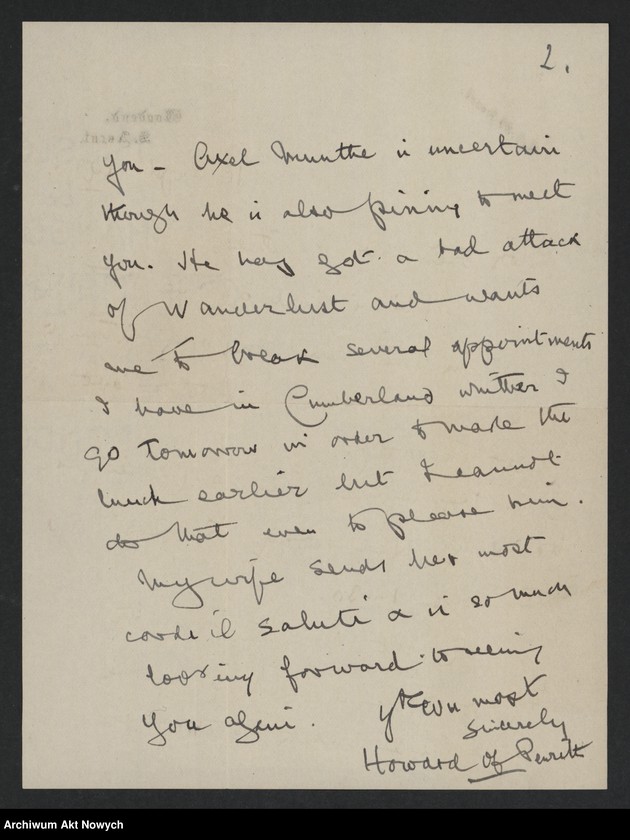 2.
you - Axel Munthe is uncertain
though he is also pining to meet
you. He has got a bad attack
of Wanderlust and wants
me to break several appointments
I have in Cumberland whither I
go tomorrow in order to make the
lunch earlier but I cannot
do that even to please him.
My wife sends her most
cordi il saluti & is so much
looking forward to seeing
you again.
yrs ever most
sincerely
Howard of Penrith
Archiwum Akt Nowych